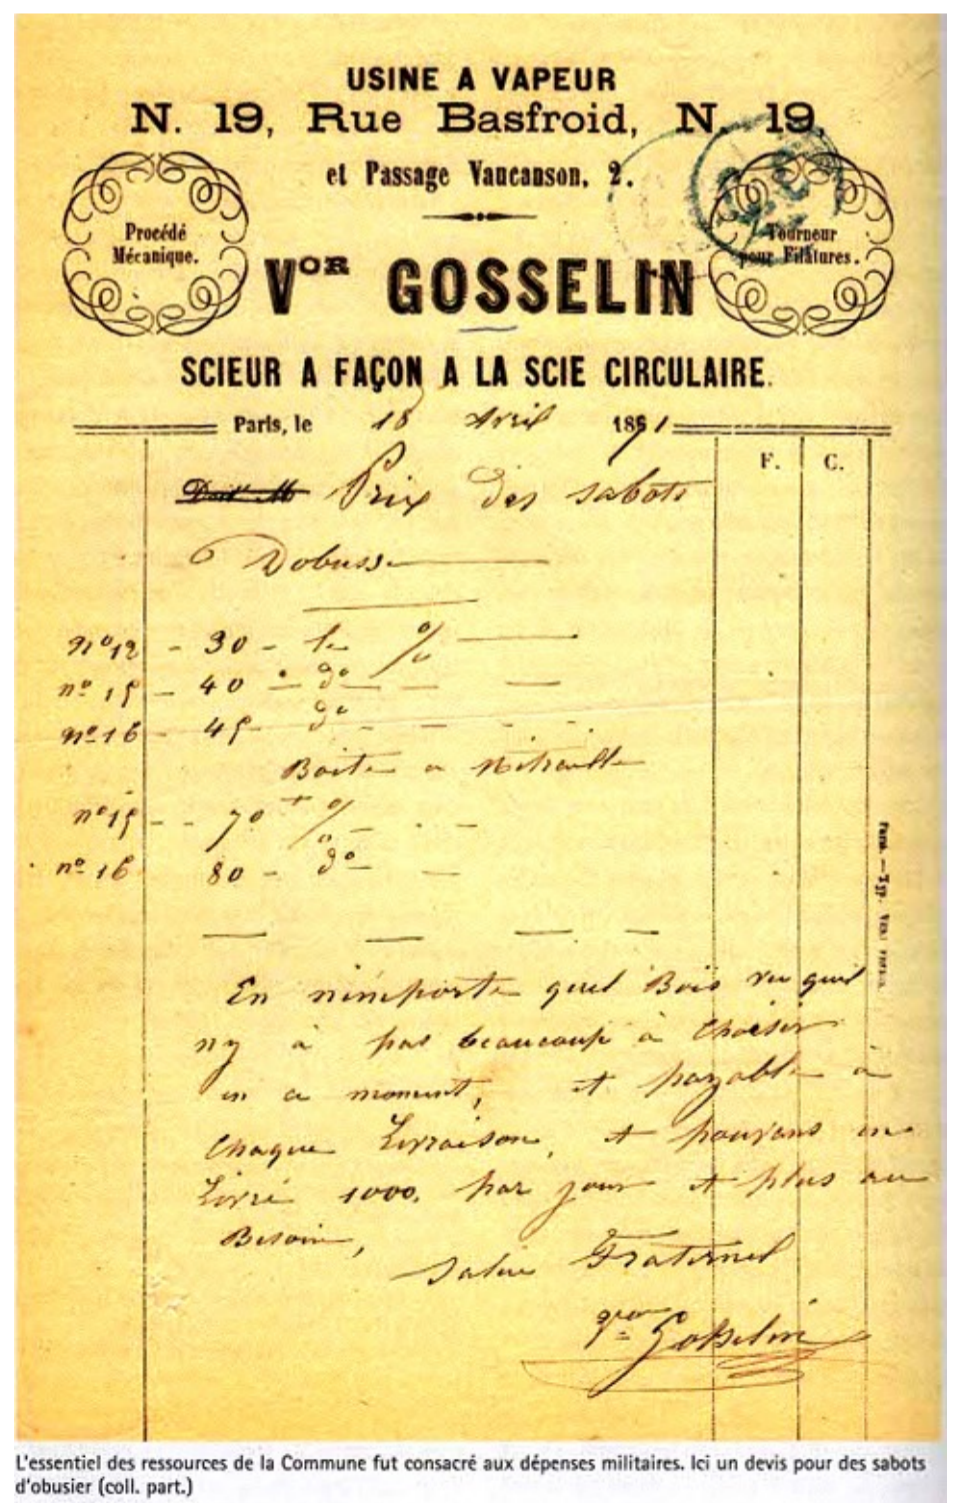 USINE A VAPEUR
N. 19, Rue Basfroid, N. 19,
et Passage Vaucanson, 2.
Procédé
Mécanique.
Tourneur
pour Filatures.
Vor GOSSELIN
SCIEUR A FAÇON A LA SCIE CIRCULAIRE.
Paris, le 18 Avril 1871
F. C.
Doit M Prix des sabots
Dobusse
no 12 - 30 - le %
no 15 - 40 - do
no 16 - 45 - do
Boite a Mitraille
no 15 - - 70 %
no 16 80 - do
En nimporte quel Bois vu quil
ny à pas beaucoup à Choisir
en ce moment, et payable à
Chaque Livraison, et pouvons en
Livré 1000. par jour et plus au
Besoin,
Salut Fraternel
Gosselin
Paris. — Typ.
L'essentiel des ressources de la Commune fut consacré aux dépenses militaires. Ici un devis pour des sabots
d'obusier (coll. part.)